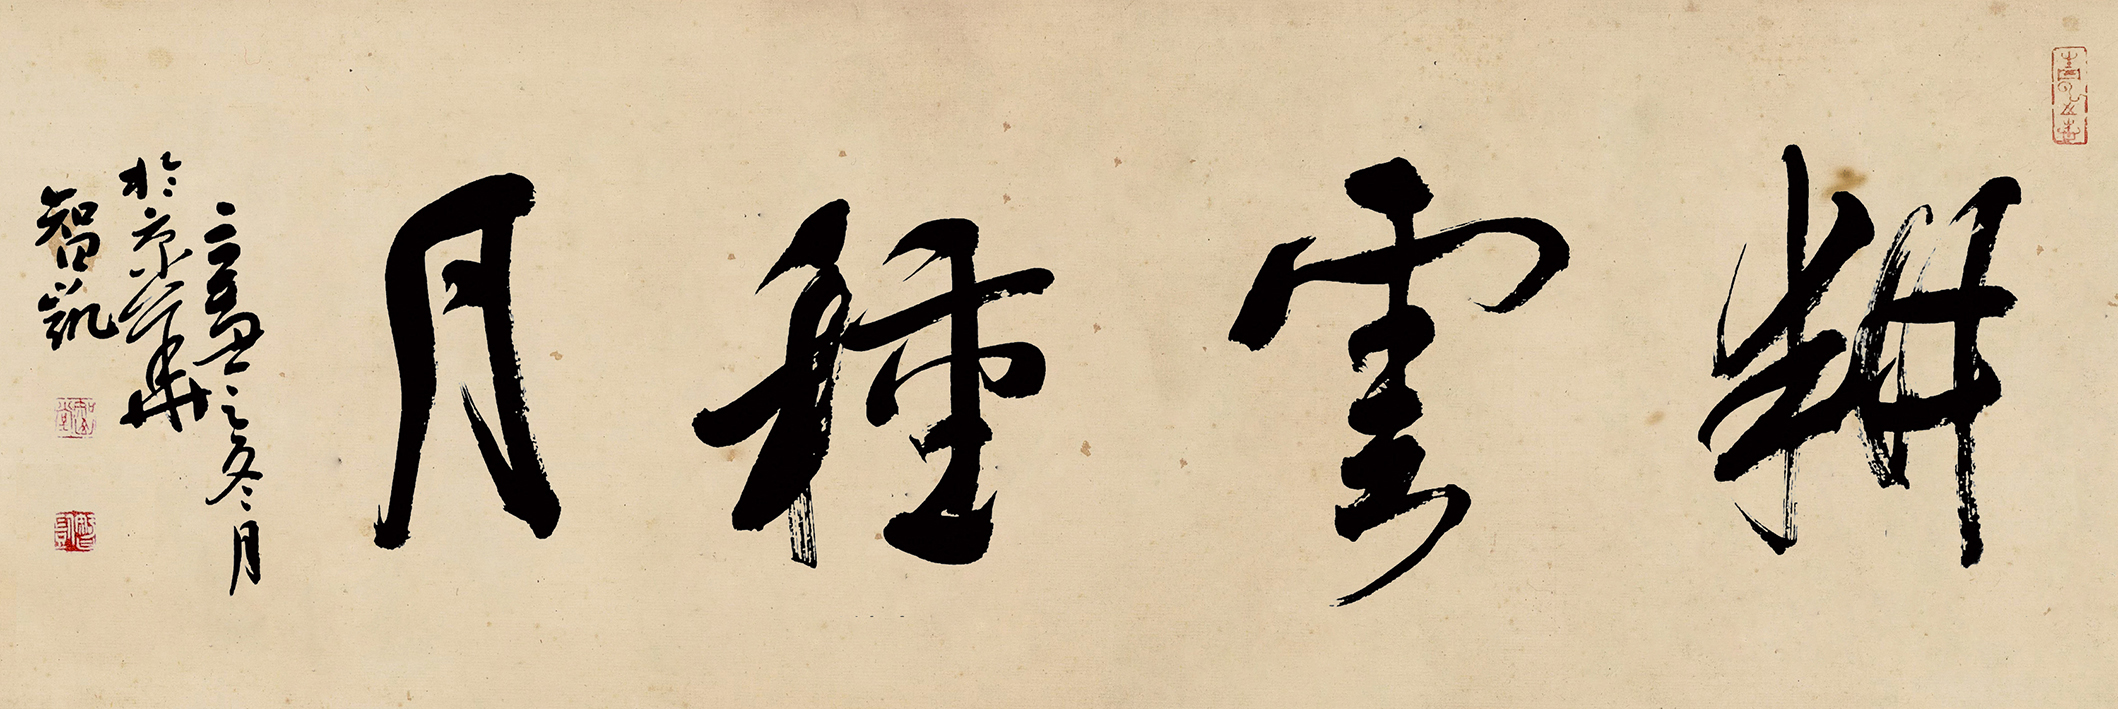 耕雲種月
之冬月
於京華
智凱